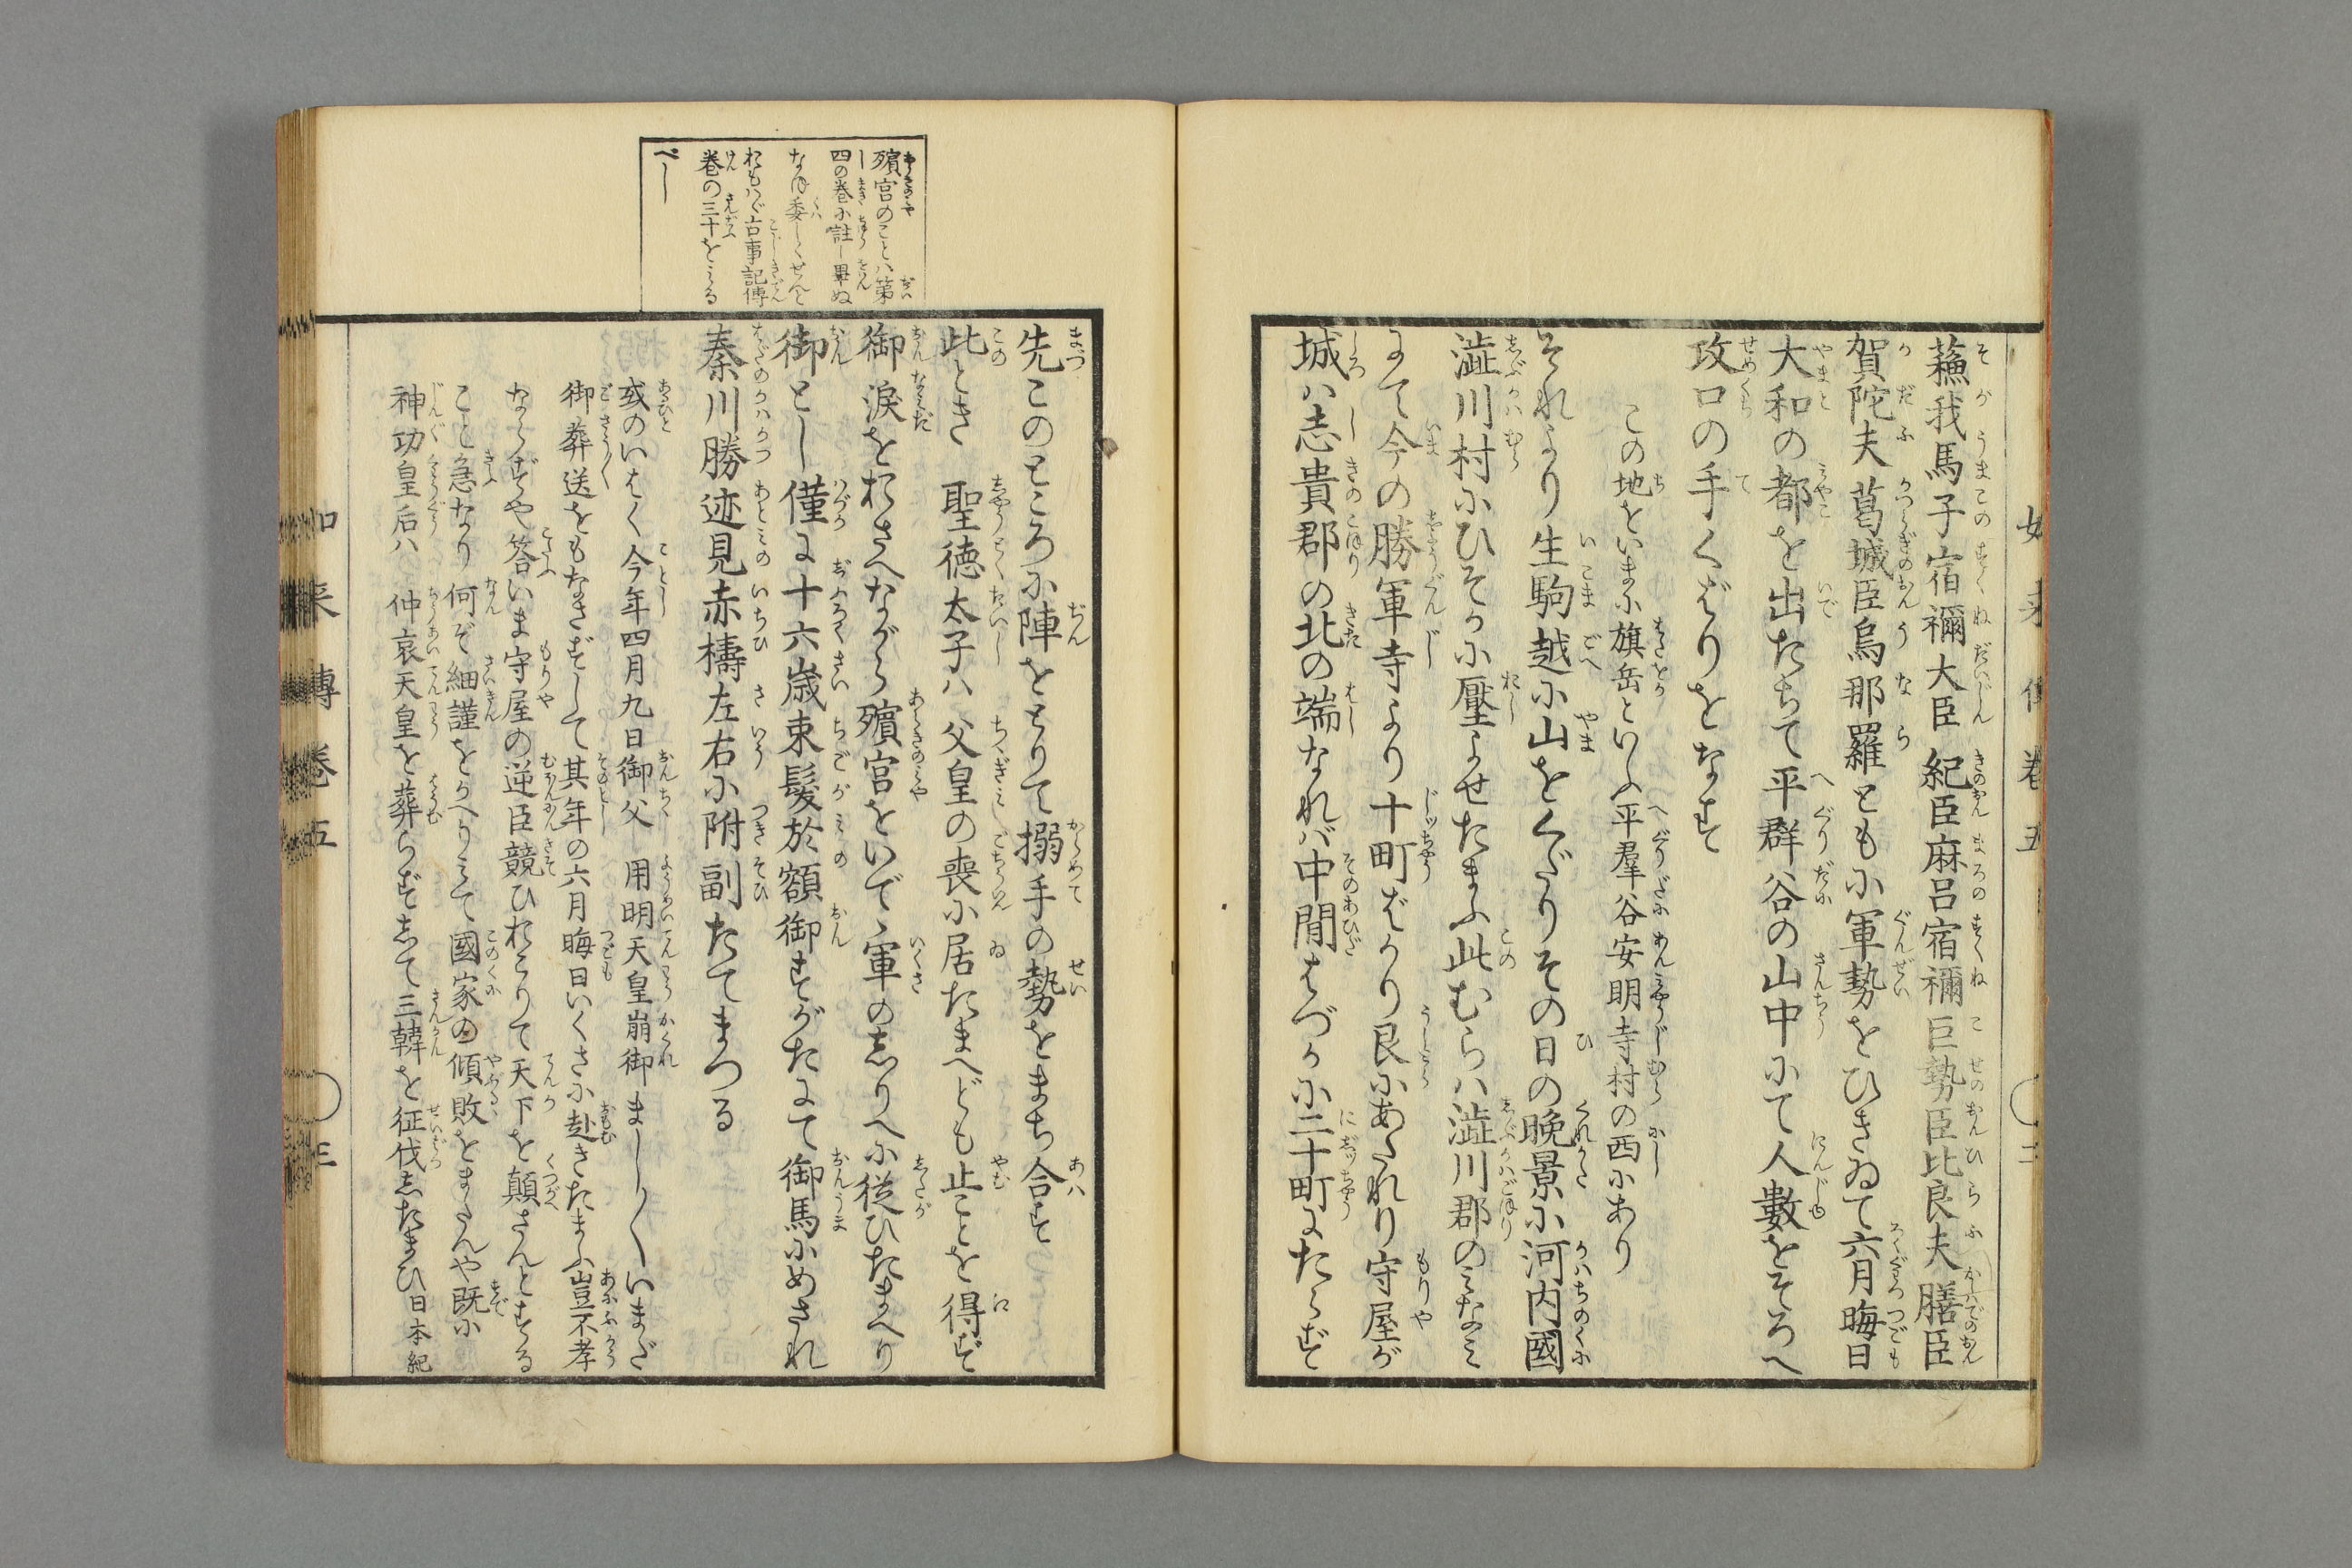 蘓我馬子宿禰大臣紀臣麻呂宿禰巨勢臣比良夫膳臣
賀陀夫葛城臣烏那羅ともに軍勢をひきゐて六月晦日
大和の都を出たちて平群谷の山中にて人數をそろへ
攻口の手くばりをなす
この地をいまに旗岳といふ平羣谷安明寺村の西にあり
それより生駒越に山をくだりその日の晩景に河内國
澁川村にひそかに壓よせたまふ此むらハ澁川郡のみなミ
にて今の勝軍寺より十町ばかり艮にあたれり守屋が
城ハ志貴郡の北の端なれバ中間はづかに二十町にたらず
如来傳巻五
三
殯宮のことハ第
四の巻に註し畢ぬ
なほ委しくせんと
おもハヾ古事記傳
巻の三十をミる
べし
先このところに陣をとりて搦手の勢をまち合す
此とき 聖徳太子ハ 父皇の喪に居たまへども止ことを得ず
御涙をおさへながら殯宮をいでゝ軍の志りへに從ひたまへり
御とし僅に十六歳束髪於額御すがたにて御馬にめされ
秦川勝迹見赤檮左右に附副たてまつる
或のいはく今年四月九日御父 用明天皇崩御ましましいまだ
御葬送をもなさずして其年の六月晦日いくさに赴きたまふ豈不孝
ならずや答いま守屋の逆臣競ひおこりて天下を顛さんとする
こと急なり何ぞ細謹をかへりミて國家の傾敗をまたんや既に
神功皇后ハ 仲哀天皇を葬らず志て三韓を征伐志たまひ日本紀
如来傳巻五
三